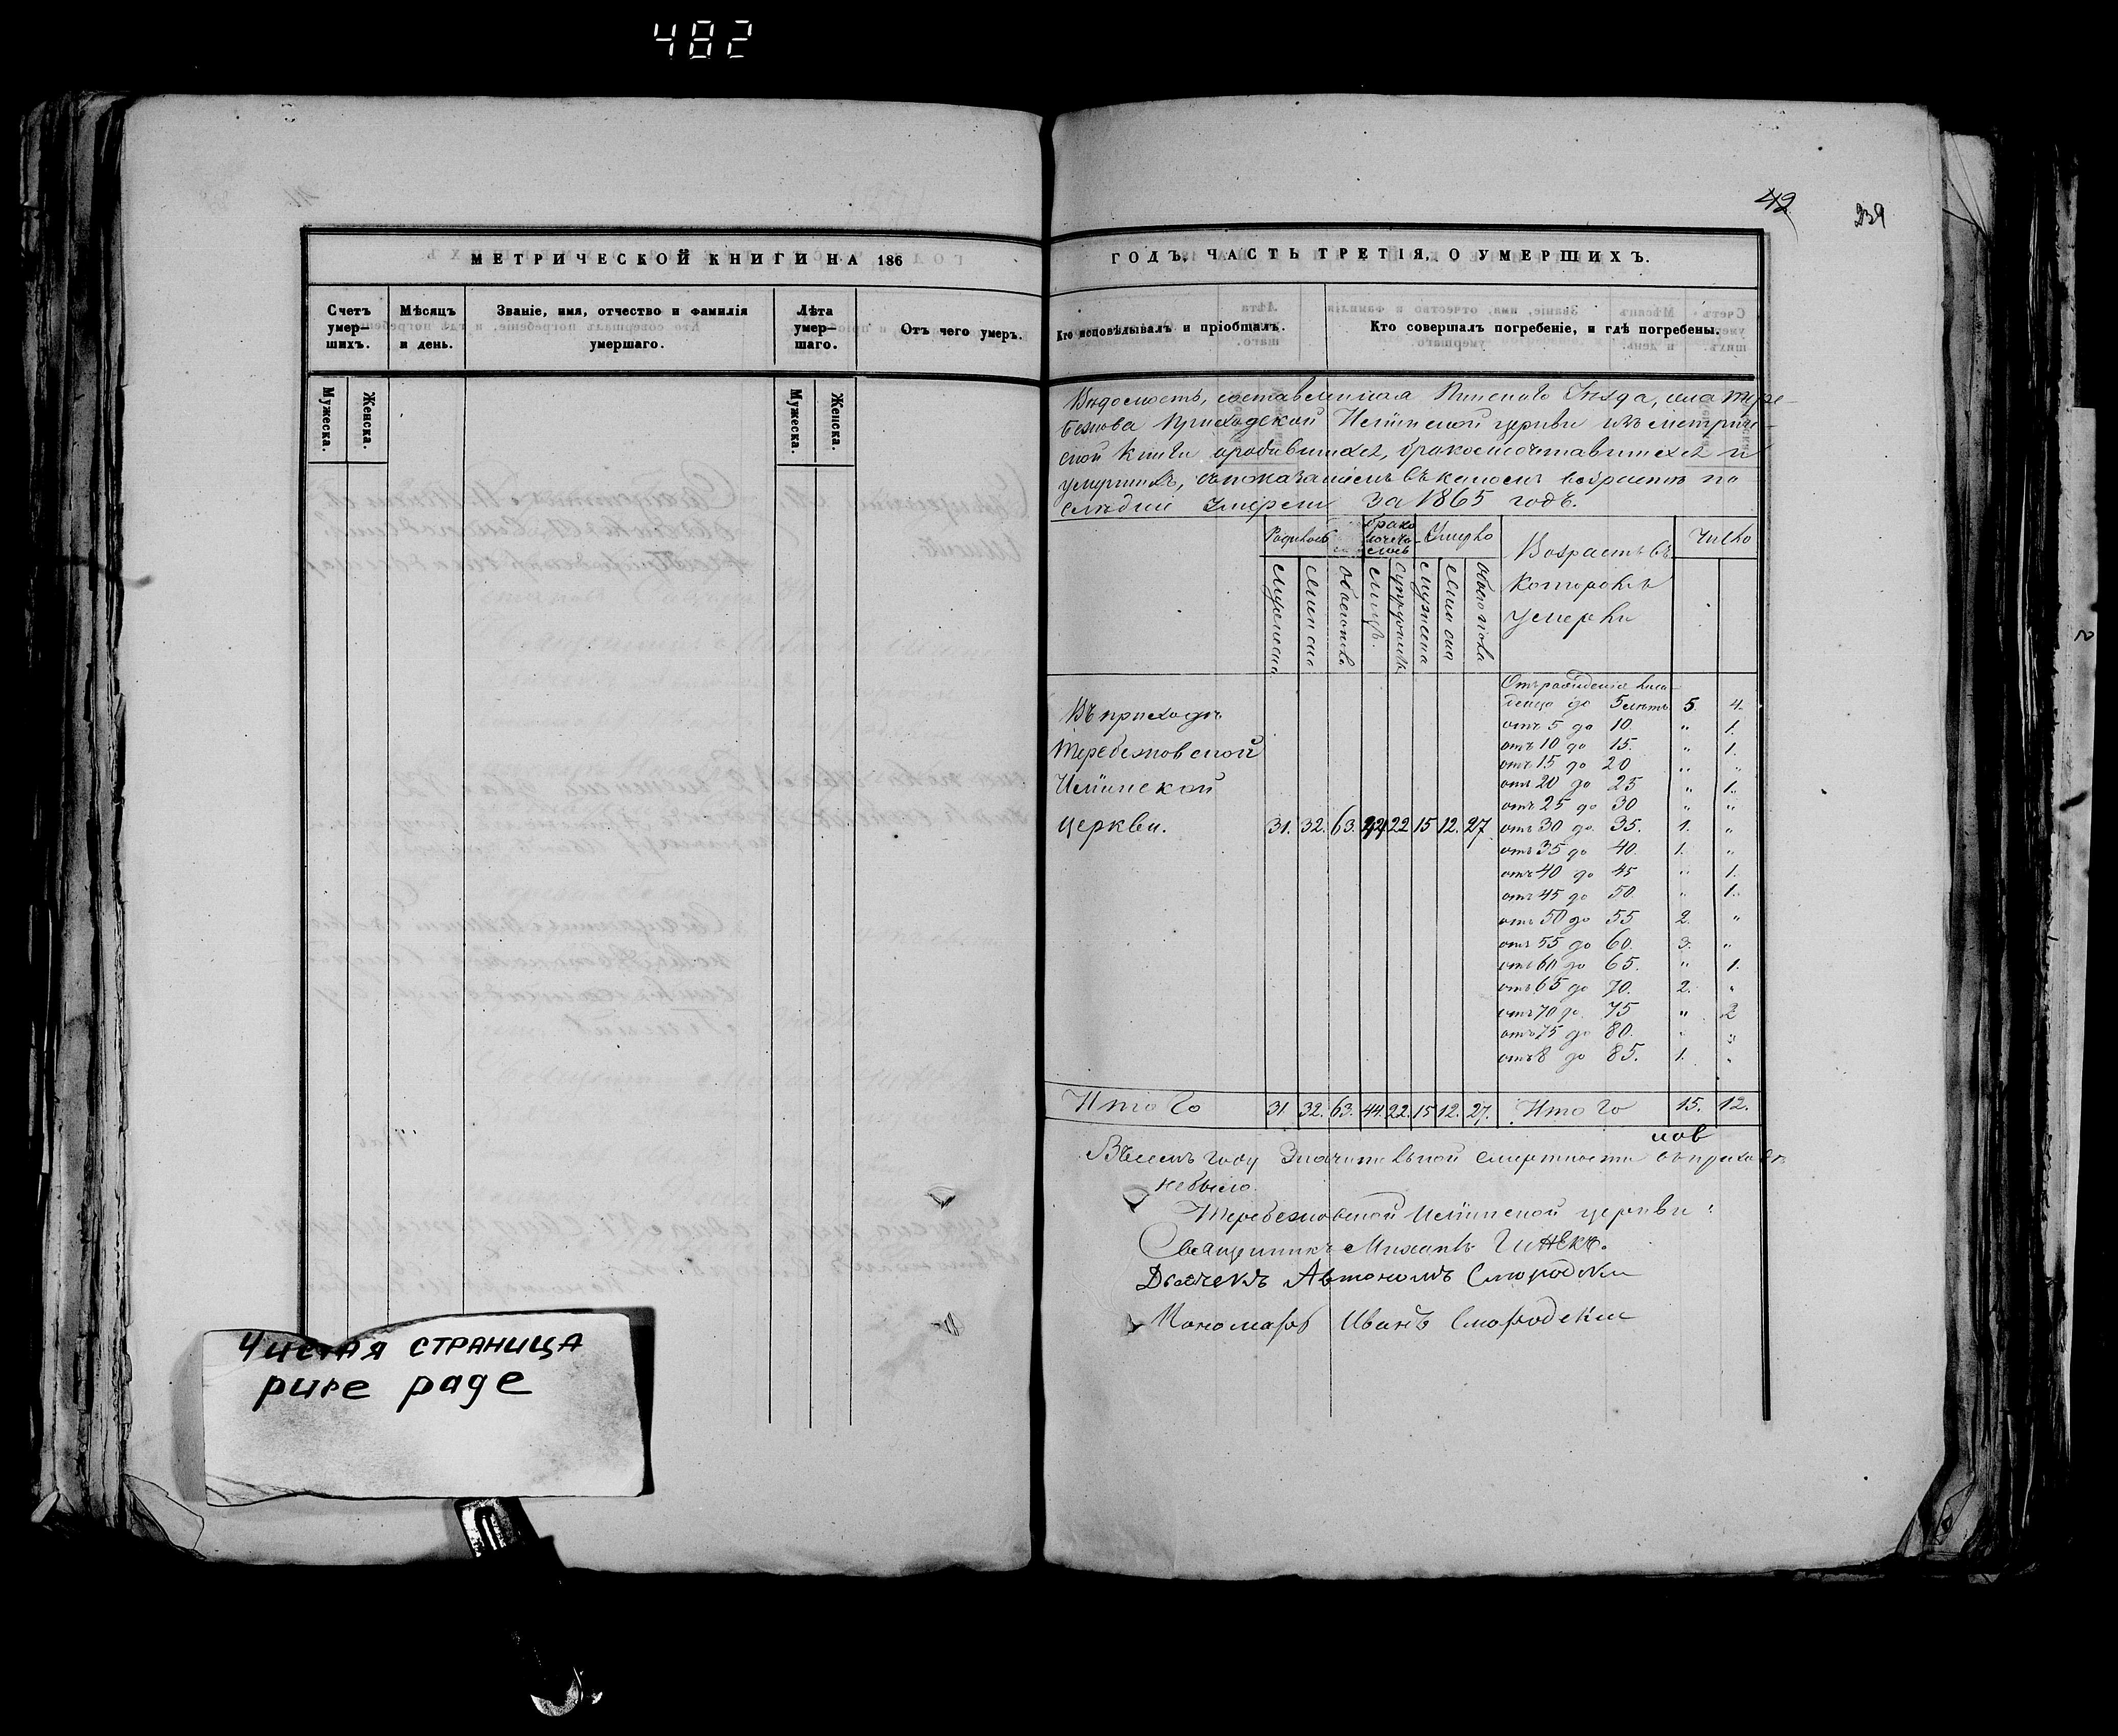 482
42
239
МЕТРИЧЕСКОЙ КНИГИ НА 186
Счетъ умер-шихъ.
Мѣсяцъ и день.
Званіе, имя, отчество и фамилія умершаго.
Лѣта умер-шаго.
Отъ чего умеръ.
Мужеска.
Женска.
Мужеска.
Женска.
Чистая страница
pure page
ГОДЪ, ЧАСТЬ ТРЕТІЯ, О УМЕРШИХЪ.
Кто исповѣдывалъ и пріобщалъ.
Кто совершалъ погребеніе, и гдѣ погребены.
Вѣдомость, составленная Пинскаго Уѣзда, села Тере-
бежова приходской церкви изъ метриче-
ской книги о родившихся, бракосочетавшихся и
умершихъ, съ показаніемъ въ какомъ возрастѣ по
слѣдніе умерли за 1865 годъ.
Родилось
брако сочета лось
Умерло
Возрастъ въ которомъ умерли
Число
мужеска
женска
обоего пола
лицъ.
супружествъ
мужеска
женска
обоего пола
Отъ рожденія мла-
денца до 5 лѣтъ 5. 4.
отъ 5 до 10. " 1.
отъ 10 до 15. " 1.
отъ 15 до 20 " "
отъ 20 до 25 " 1.
отъ 25 до 30 " "
отъ 30 до 35. 1. "
отъ 35 до 40. 1. "
отъ 40 до 45 " 1.
отъ 45 до 50. " 1.
отъ 50 до 55 2. "
отъ 55 до 60. 3. "
отъ 60 до 65. " 1.
отъ 65 до 70. 2. "
отъ 70 до 75 " 2
отъ 75 до 80. " "
отъ 8 до 85. 1. "
Въ приходѣ
Теребежовской
церкви. 31. 32. 63. 44 22 15 12. 27
Итого 31. 32. 63. 44. 22. 15 12. 27. Итого 15. 12.
Въ семъ году значительной смертности въ приходѣ
не было.
Теребежовской церкви:
Священникъ Михаилъ
Дьячекъ Автономъ Смородски
Пономарь Иванъ Смородски